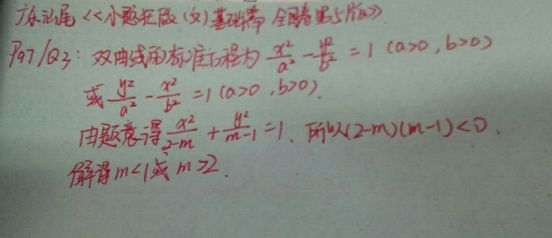 广东汕尾《小题狂做(文)基础篇 全国卷第5版》
P97/Q3: 双曲线的标准方程为 x²/a² - y²/b² = 1 (a>0, b>0)
或 y²/a² - x²/b² = 1 (a>0, b>0).
由题意得 x²/(2-m) + y²/(m-1) = 1. 所以(2-m)(m-1)<0.
解得 m<1 或 m>2.